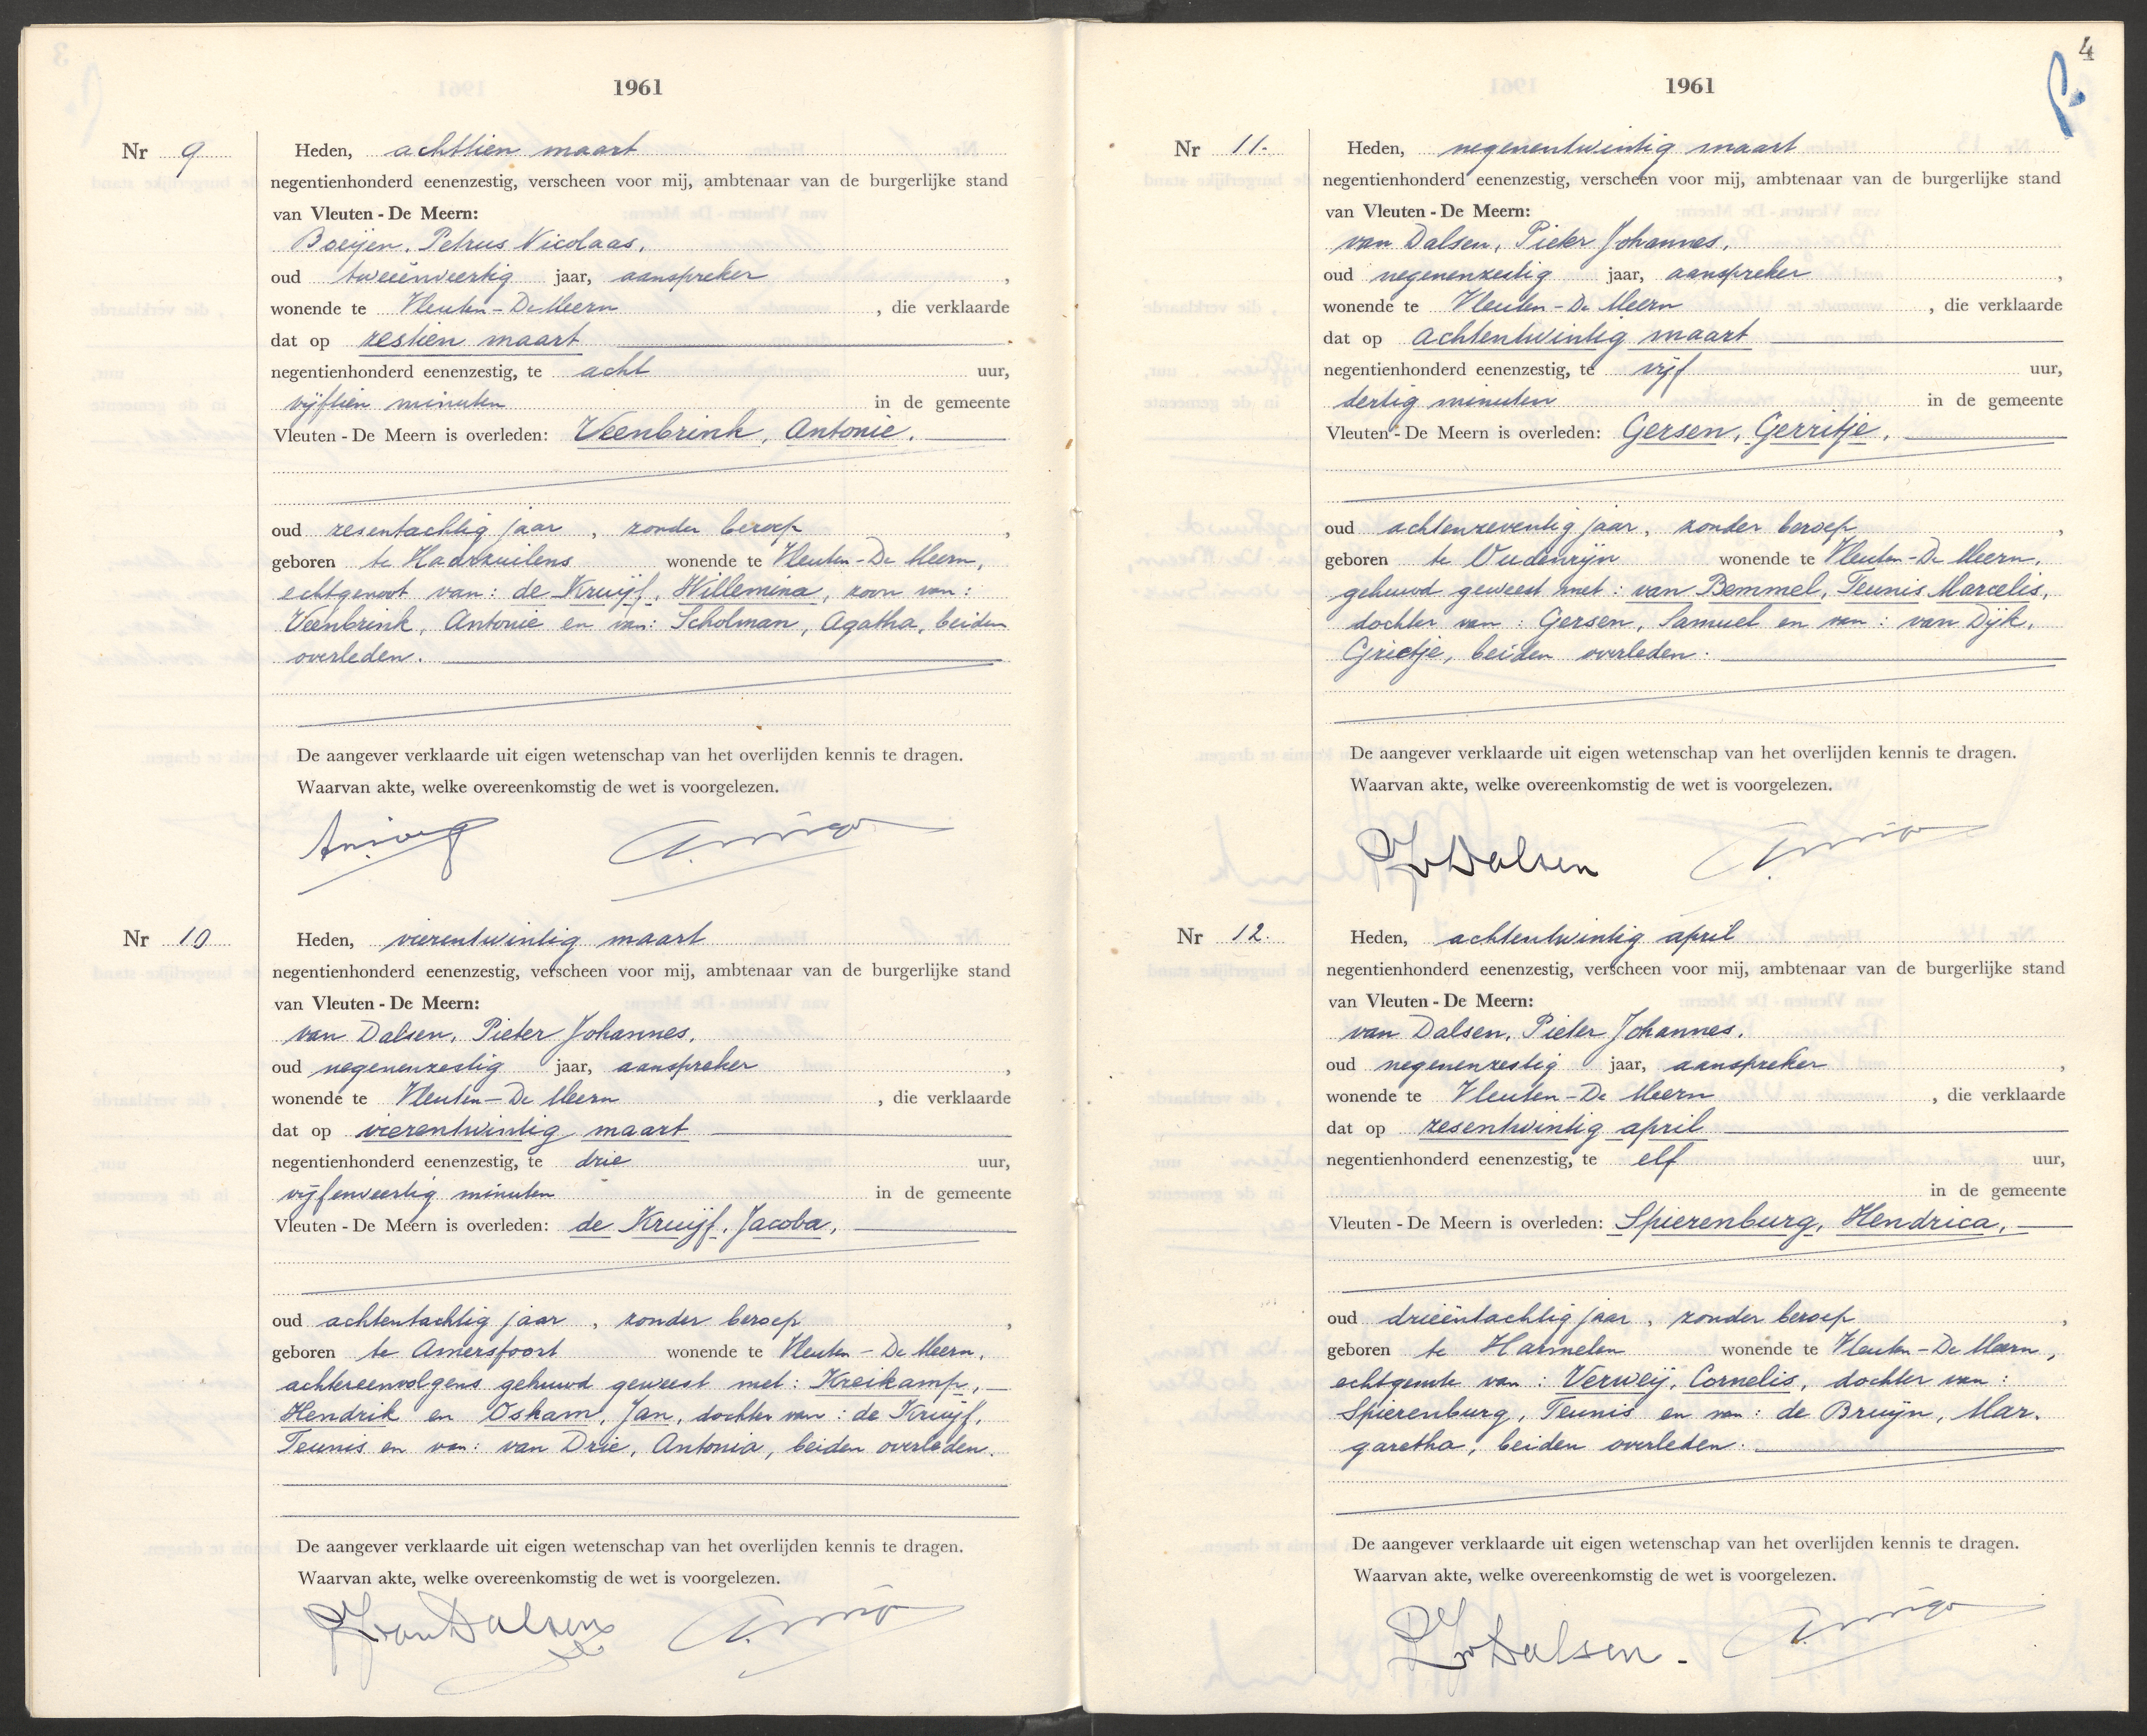 1961
Nr 9
Heden, achttien maart
negentienhonderd eenenzestig, verscheen voor mij, ambtenaar van de burgerlijke stand
van Vleuten - De Meern:
Boeijen, Petrus Nicolaas,
oud tweeënveertig jaar, aanspreker ,
wonende te Vleuten - De Meern , die verklaarde
dat op zestien maart
negentienhonderd eenenzestig, te acht uur,
vijftien minuten in de gemeente
Vleuten - De Meern is overleden: Veenbrink, Antonie.
oud zesentachtig jaar , zonder beroep ,
geboren te Haarzuilens wonende te Vleuten - De Meern,
echtgenoot van: de Kruijf, Willemina, zoon van:
Veenbrink, Antonie en van: Scholman, Agatha, beiden
overleden.
De aangever verklaarde uit eigen wetenschap van het overlijden kennis te dragen.
Waarvan akte, welke overeenkomstig de wet is voorgelezen.
Nr 10
Heden, vierentwintig maart
negentienhonderd eenenzestig, verscheen voor mij, ambtenaar van de burgerlijke stand
van Vleuten - De Meern:
van Dalsen, Pieter Johannes,
oud negenenzestig jaar, aanspreker ,
wonende te Vleuten - De Meern , die verklaarde
dat op vierentwintig maart
negentienhonderd eenenzestig, te drie uur,
vijfenveertig minuten in de gemeente
Vleuten - De Meern is overleden: de Kruijf, Jacoba,
oud achtentachtig jaar , zonder beroep ,
geboren te Amersfoort wonende te Vleuten - De Meern,
achtereenvolgens gehuwd geweest met: Kreikamp,
Hendrik en Oskam, Jan, dochter van: de Kruijf,
Teunis en van: van Drie, Antonia, beiden overleden.
De aangever verklaarde uit eigen wetenschap van het overlijden kennis te dragen.
Waarvan akte, welke overeenkomstig de wet is voorgelezen.
PJ van Dalsen
4
1961
Nr 11.
Heden, negenentwintig maart
negentienhonderd eenenzestig, verscheen voor mij, ambtenaar van de burgerlijke stand
van Vleuten - De Meern:
van Dalsen, Pieter Johannes,
oud negenenzestig jaar, aanspreker ,
wonende te Vleuten - De Meern , die verklaarde
dat op achtentwintig maart
negentienhonderd eenenzestig, te vijf uur,
dertig minuten in de gemeente
Vleuten - De Meern is overleden: Gersen, Gerritje,
oud achtenzeventig jaar , zonder beroep ,
geboren te Oudenrijn wonende te Vleuten - De Meern,
gehuwd geweest met: van Bemmel, Teunis Marcelis,
dochter van: Gersen, Samuel en van: van Dijk,
Grietje, beiden overleden.
De aangever verklaarde uit eigen wetenschap van het overlijden kennis te dragen.
Waarvan akte, welke overeenkomstig de wet is voorgelezen.
PJ v Dalsen
Nr 12.
Heden, achtentwintig april
negentienhonderd eenenzestig, verscheen voor mij, ambtenaar van de burgerlijke stand
van Vleuten - De Meern:
van Dalsen, Pieter Johannes,
oud negenenzestig jaar, aanspreker ,
wonende te Vleuten - De Meern , die verklaarde
dat op zesentwintig april
negentienhonderd eenenzestig, te elf uur,
in de gemeente
Vleuten - De Meern is overleden: Spierenburg, Hendrica,
oud drieëntachtig jaar , zonder beroep ,
geboren te Harmelen wonende te Vleuten - De Meern,
echtgenote van: Verweij, Cornelis, dochter van:
Spierenburg, Teunis en van: de Bruijn, Mar-
garetha, beiden overleden.
De aangever verklaarde uit eigen wetenschap van het overlijden kennis te dragen.
Waarvan akte, welke overeenkomstig de wet is voorgelezen.
PJ v Dalsen.